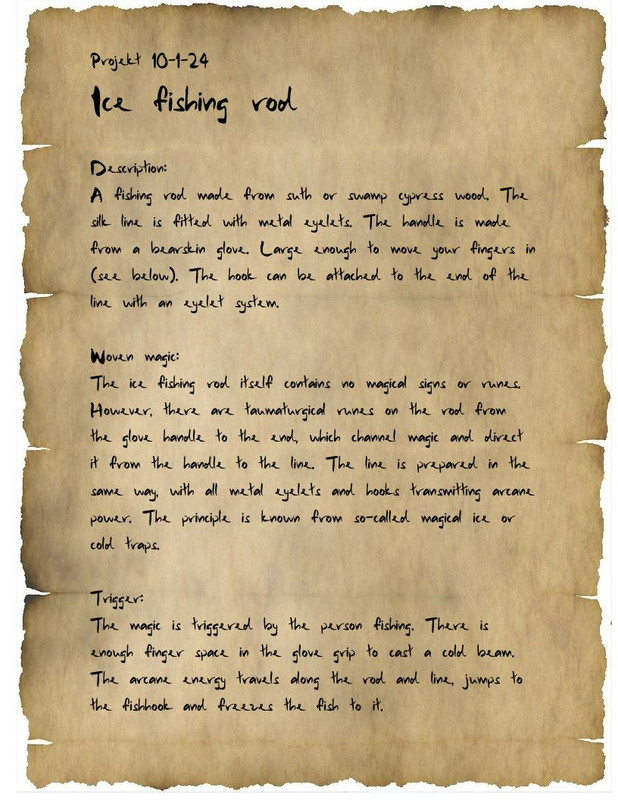 Projekt 10-1-24
Ice fishing rod
Description:
A fishing rod made from suth or swamp cypress wood. The
silk line is fitted with metal eyelets. The handle is made
from a bearskin glove. Large enough to move your fingers in
(see below). The hook can be attached to the end of the
line with an eyelet system.
Woven magic:
The ice fishing rod itself contains no magical signs or runes.
However, there are taumaturgical runes on the rod from
the glove handle to the end, which channel magic and direct
it from the handle to the line. The line is prepared in the
same way, with all metal eyelets and hooks transmitting arcane
power. The principle is known from so-called magical ice or
cold traps.
Trigger:
The magic is triggered by the person fishing. There is
enough finger space in the glove grip to cast a cold beam.
The arcane energy travels along the rod and line, jumps to
the fishhook and freezes the fish to it.